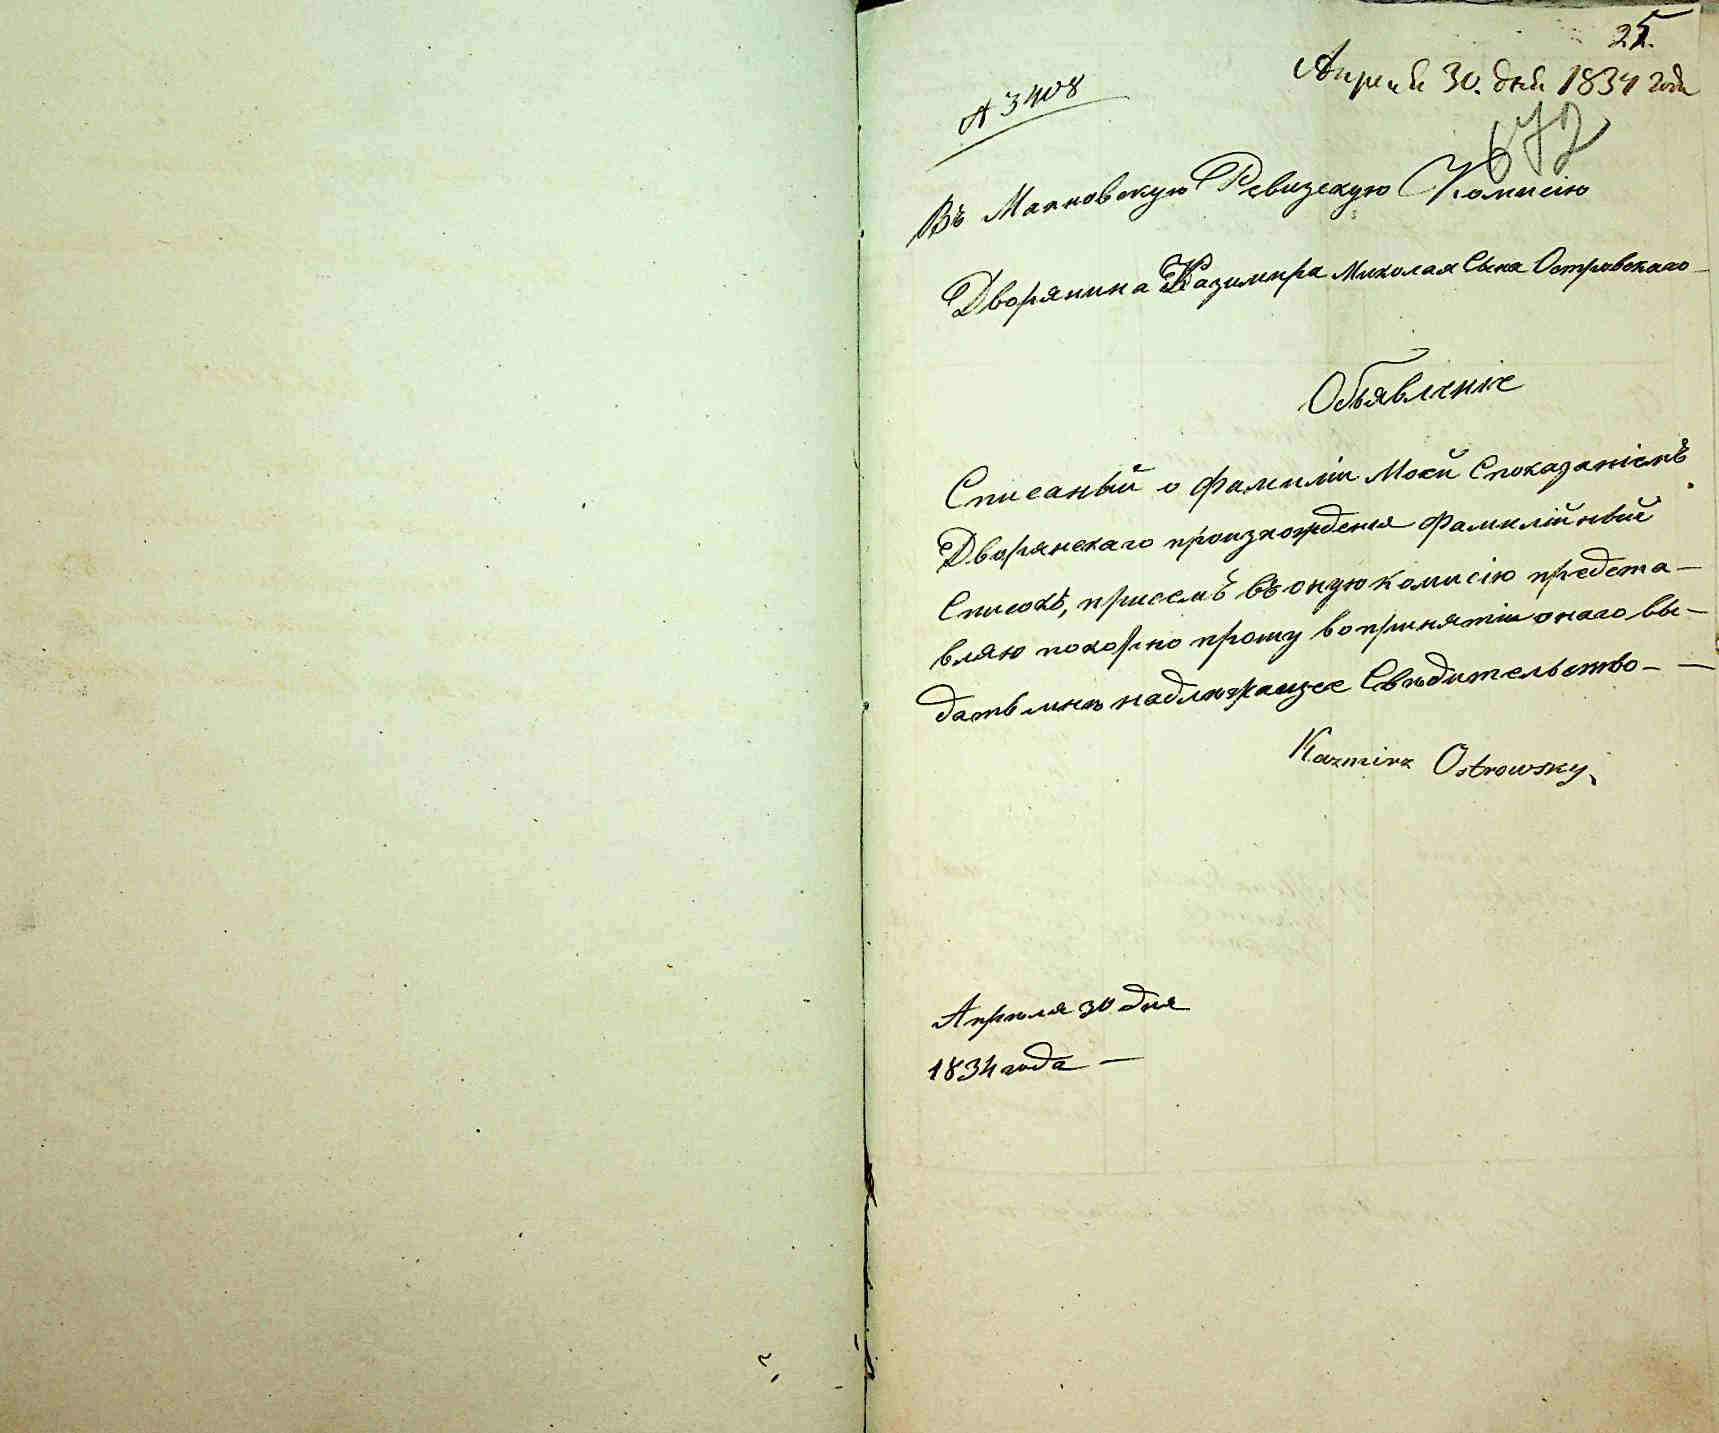 25.
Апреля 30. дня 1834 года
№ 3408
672
Въ Махновскую Ревизскую Комисію
Дворянина Казимира Миколая Сына Островскаго
Объявленіе
Списаный о фамиліи Моей Споказаніемъ
Дворянскаго произхождения фамилійный
Списокъ, присемъ въ оную комисію предста-
вляю покорно прошу в опринятіи онаго вы-
дать мнѣ надлежащее Свѣдительство-
Kazmirz Ostrowsky
Апрѣля 30 дня
1834 года